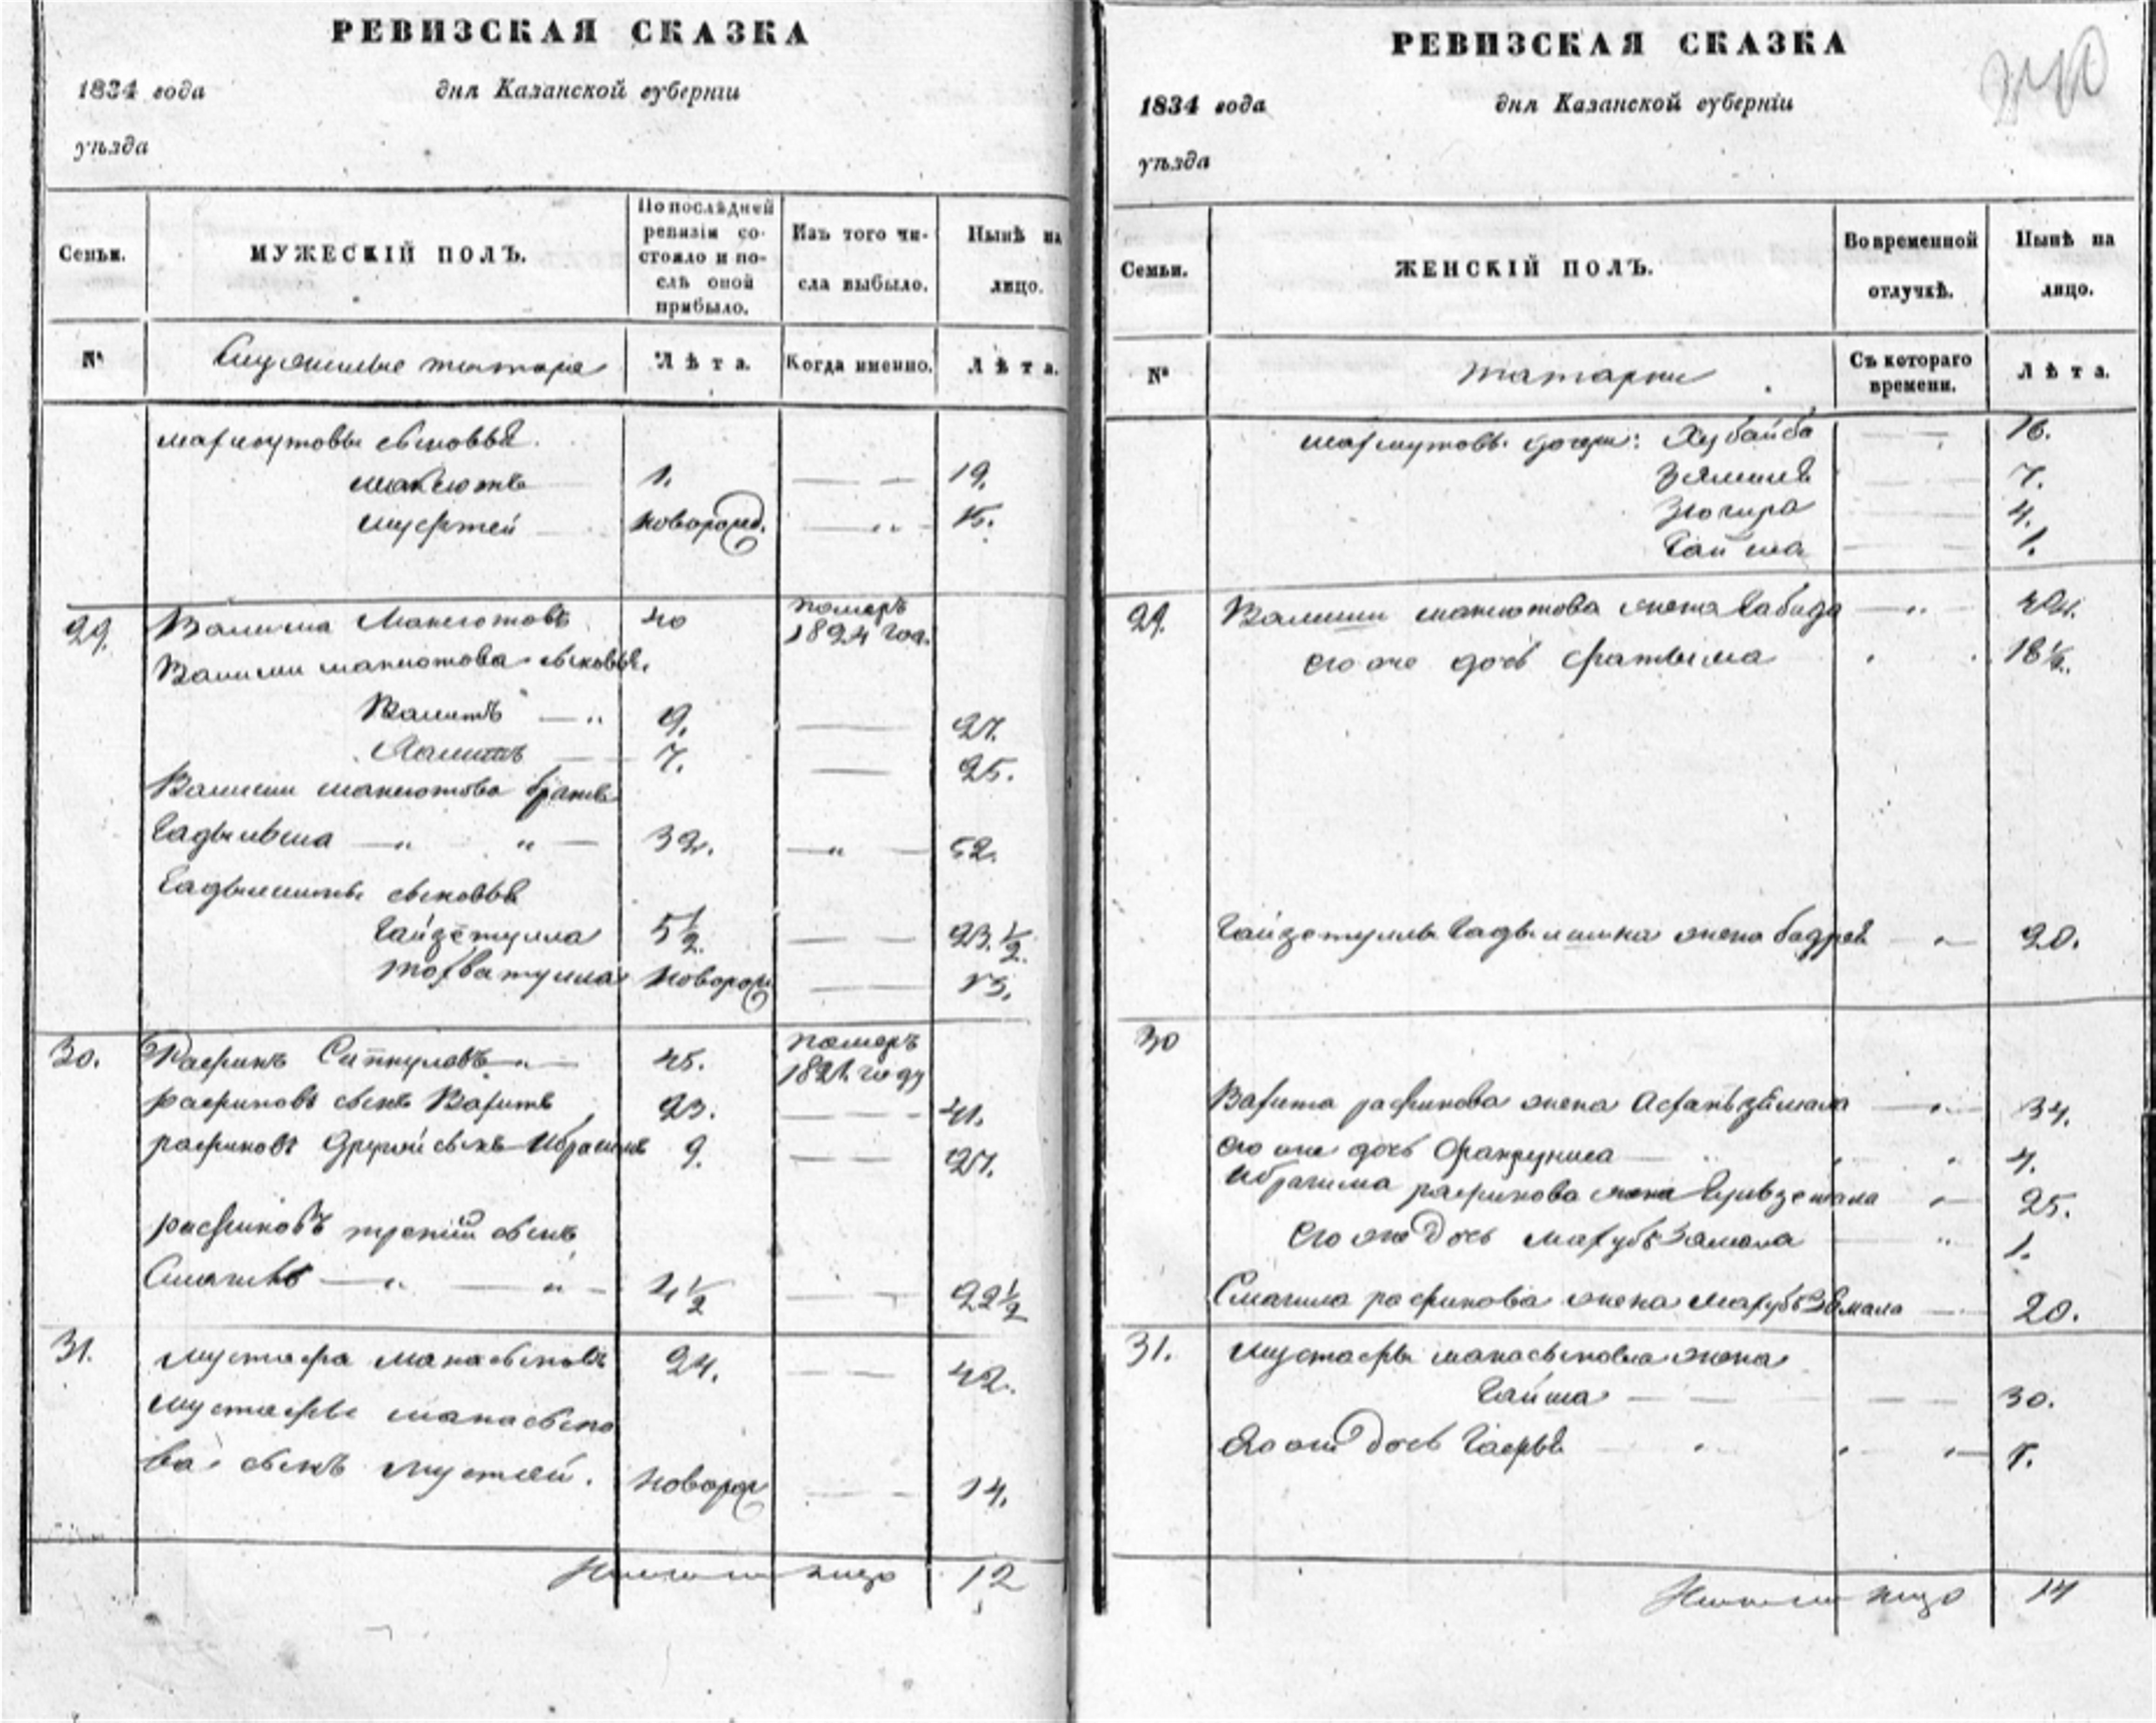 РЕВИЗСКАЯ СКАЗКА
1834 года дня Казанской губерніи
уѣзда
Семьи. МУЖЕСКІЙ ПОЛЪ. По послѣдней ревизіи состояло и послѣ оной прибыло. Изъ того числа выбыло. Нынѣ на лицо.
№ Служилые татара Лѣта. Когда именно. Лѣта.
Махмутовы сыновья.
Максютъ 1. 19.
Мустей новорожд.
29. Валиша Максютовъ 40 померъ 1824 год.
Валиши Максютова сыновья.
Валитъ 9. 27.
7. 25.
Валиши Максютова братъ
Гадыльша 32. 52.
Гадыльшины сыновья
Гайзетулла 5½ 23½
Тохватулла новорож
30. Рафикъ 45. померъ 1821 году
рафиковъ сынъ Вахитъ 23. 41.
рафиковъ другой сынъ Ибрагимъ 9. 27.
рафиковъ третій сынъ
Смагилъ 4½ 22½
31. Мустафа Манасыповъ 24. 42.
Мустафы Манасыпо
ва сынъ Мустей. новорож 14.
Итого на лицо 12
РЕВИЗСКАЯ СКАЗКА
1834 года дня Казанской губерніи
уѣзда
Семьи. ЖЕНСКІЙ ПОЛЪ. Во временной отлучкѣ. Нынѣ на лицо.
№ татарки Съ котораго времени. Лѣта.
Махмутовы дочери: Хубайба 16.
7.
Зюгира 4.
Гайша 1.
29. Валиши Максютова жена Габида
его же дочь Фатыма 18½.
Гайзетуллы Гадыльшина жена Бадрея 20.
30
Вахита рафикова жена 34.
его же дочь 4.
Ибрагима рафикова жена 25.
его же дочь Махубъзямала 1.
Смагила рафикова жена Махубъзямала 20.
31. Мустафы Манасыпова жена
Гайша 30.
Его же дочь
Итого на лицо 14